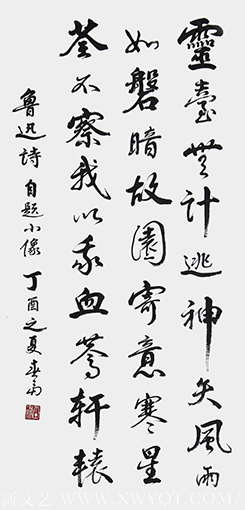 靈臺無計逃神矢風雨
如磐暗故園寄意寒星
荃不察我以我血薦轩辕
魯迅詩自题小像丁酉之夏
新文艺 WWW.XWYQT.COM